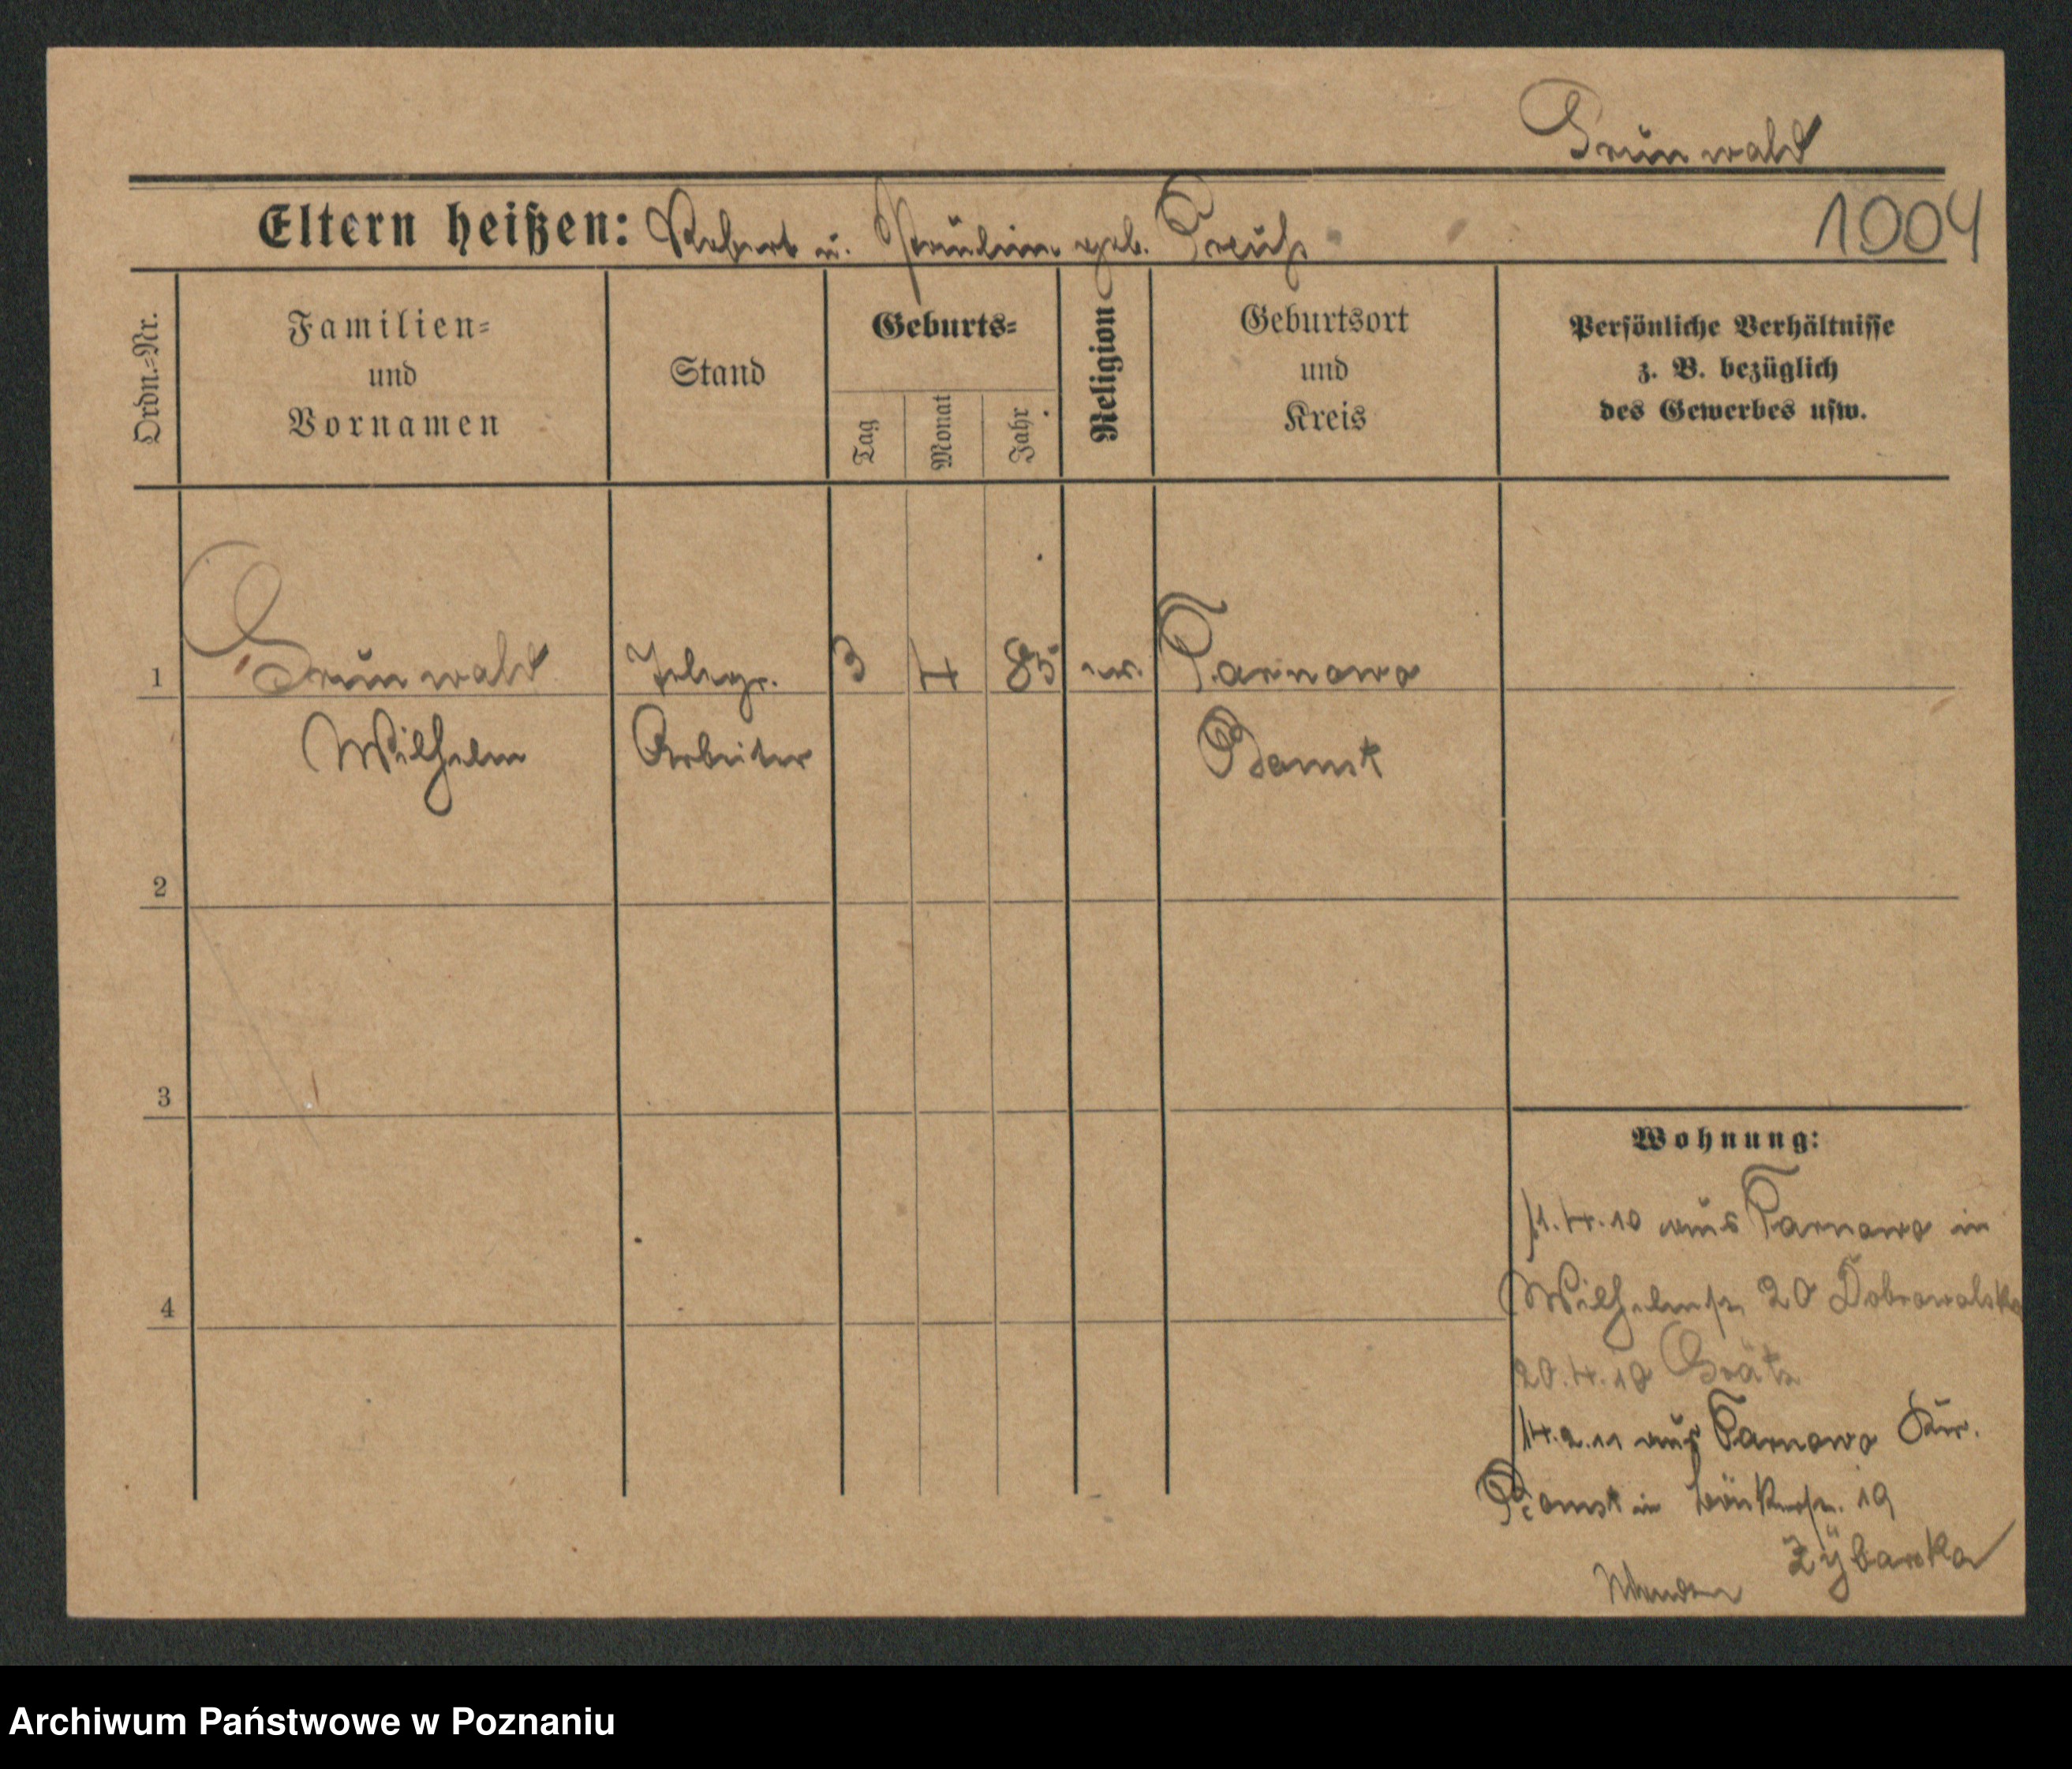 Grünwald
Eltern heißen: Robert u. Pauline geb. Preuß
1004
Ordn.=Nr.
Familien=
und
Vornamen
Stand
Geburts=
Tag
Monat
Jahr
Religion
Geburtsort
und
Kreis
Persönliche Verhältnisse
z. B. bezüglich
des Gewerbes usw.
1 Grünwald Telegr. 3 4 85 ev. Tarnowo
Wilhelm Arbeiter Bomst
2
3
4
Wohnung:
1.4.10 aus Tarnowo in
Wilhelmstr. 20 Dobrowolska
20.4.10 Grätz
14.2.11 aus Tarnowo Kr.
Bomst in 19
Zybarska
Archiwum Państwowe w Poznaniu